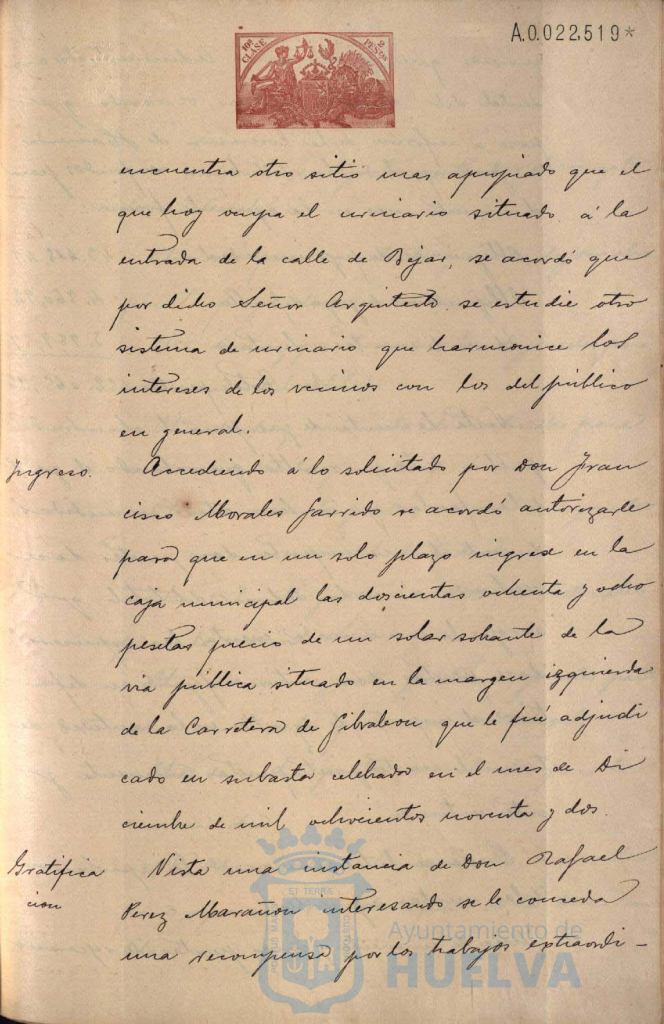 A.0.022,519*
10ª CLASE
2 PESETAS
encuentra otro sitio mas apropiado que el
que hoy ocupa el urinario situado á la
entrada de la calle de Bejar, se acordó que
por dicho Señor Arquitecto se estudie otro
sistema de urinario que harmonice los
intereses de los vecinos con los del público
en general.
Ingreso. Accediendo á lo solicitado por Don Fran
cisco Morales Garrido se acordó autorizarle
para que en un solo plazo ingrese en la
caja municipal las doscientas ochenta y ocho
pesetas precio de un solar sobrante de la
via pública situado en la margen izquierda
de la Carretera de Gibraleon que le fué adjudi
cado en subasta celebrada en el mes de Di
ciembre de mil ochocientos noventa y dos.
Gratifica
cion
Vista una instancia de Don Rafael
Perez Marañon interesando se le conceda
una recompensa por los trabajos extraordi-
ET TERRÆ
Ayuntamiento de
HUELVA